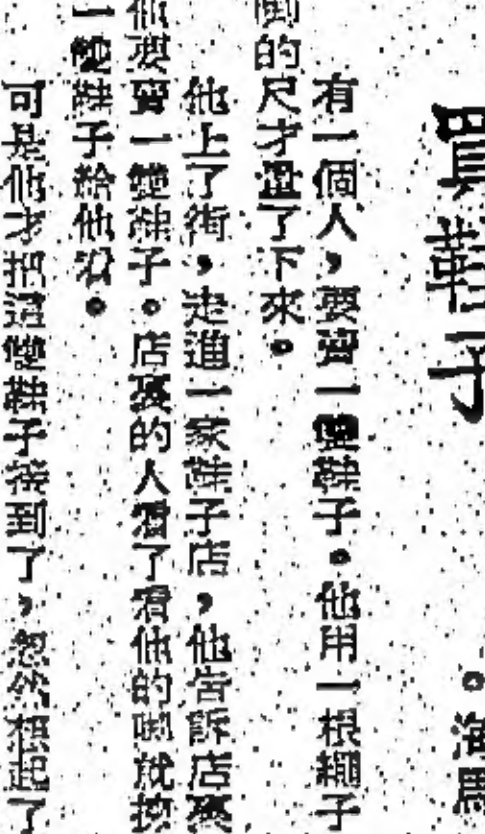 買鞋子 。海馬
有一個人，要買一雙鞋子。他用一根繩子
的尺才量了下來。
他上了街，走進一家鞋子店，他告訴店裏
他要買一雙鞋子。店裏的人看了看他的脚就按
一雙鞋子給他看。
可是他才把這雙鞋子接到了，忽然想起了